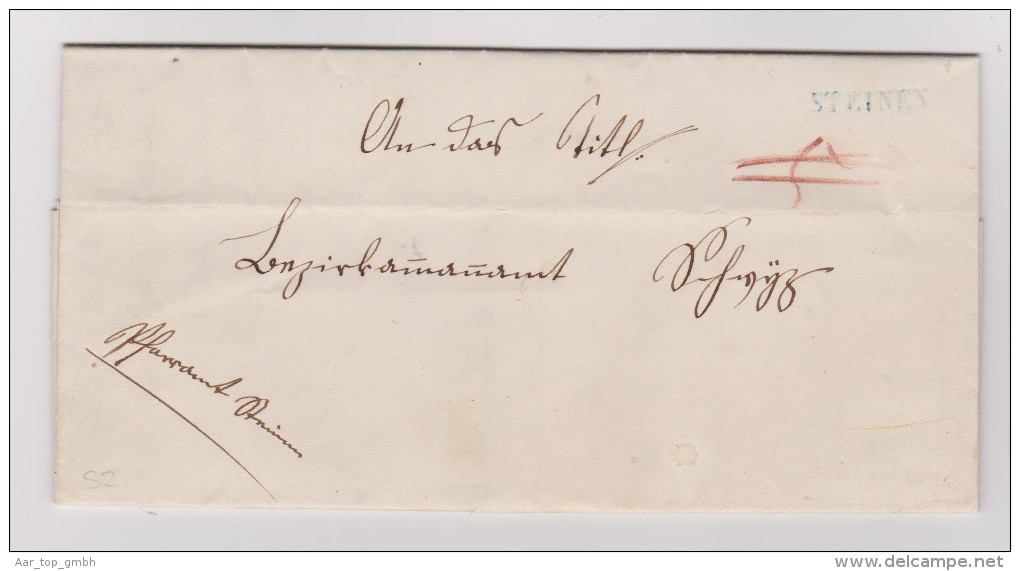 STEINEN
An das Titl.
Bezirksam̅an̅amt Schwÿz
Pfarramt Steinen
SZ
Aar_top_gmbh
delcampe.net